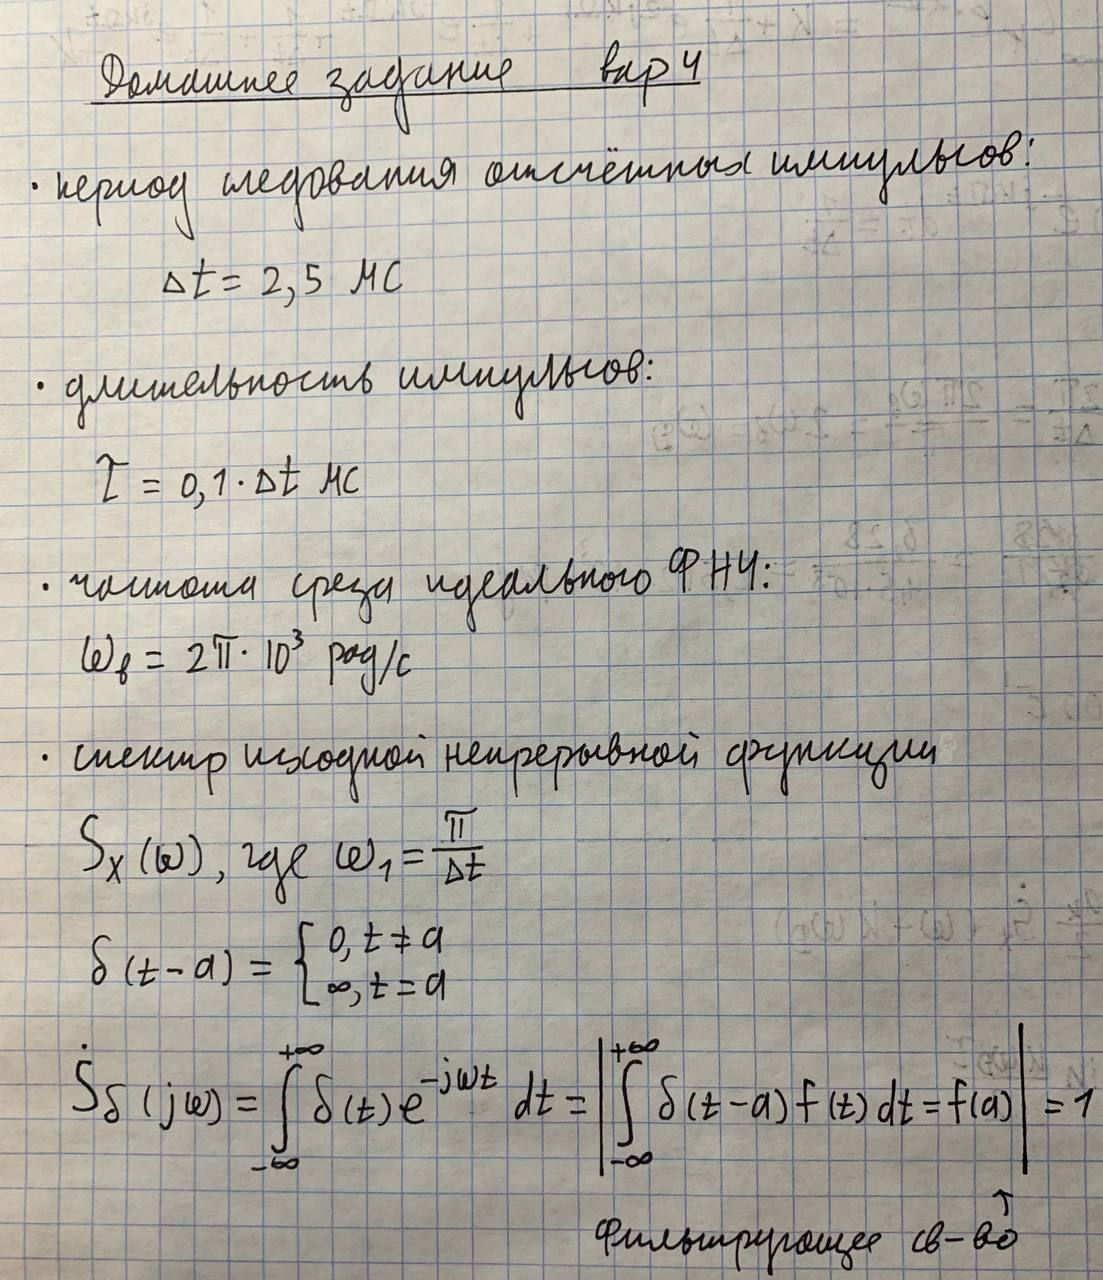 Домашнее задание вар 4
· период следования отсчётных импульсов:
Δt = 2,5 мс
· длительность импульсов:
τ = 0,1 · Δt мс
· частота среза идеального ФНЧ:
ωв = 2π · 10³ рад/с
· спектр исходной непрерывной функции
Sx(ω), где ω₁ = π/Δt
δ(t-a) = { 0, t ≠ a
∞, t = a
Ṡδ(jω) = ∫_{-∞}^{+∞} δ(t)e^{-jωt} dt = | ∫_{-∞}^{+∞} δ(t-a) f(t) dt = f(a) | = 1
↑
Фильтрующее св-во